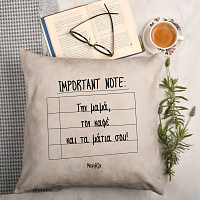 IMPORTANT NOTE:
Την μαμά,
τον καφέ
και τα μάτια σου!